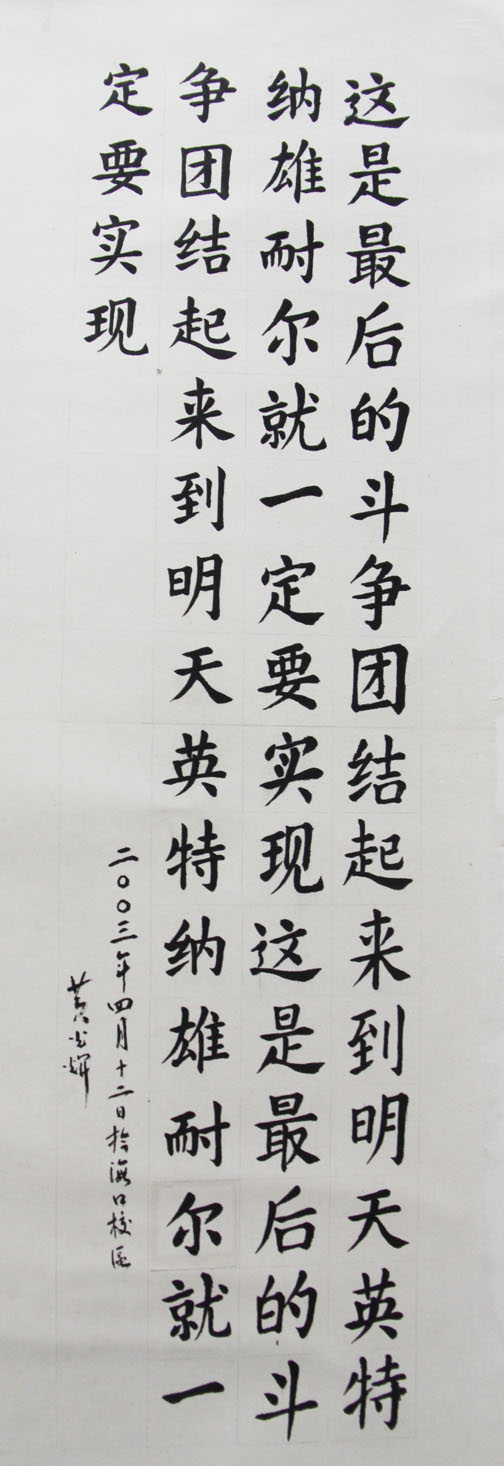 这是最后的斗争团结起来到明天英特
纳雄耐尔就一定要实现这是最后的斗
争团结起来到明天英特纳雄耐尔就一
定要实现
二〇〇三年四月十二日於海口校区
黄光辉